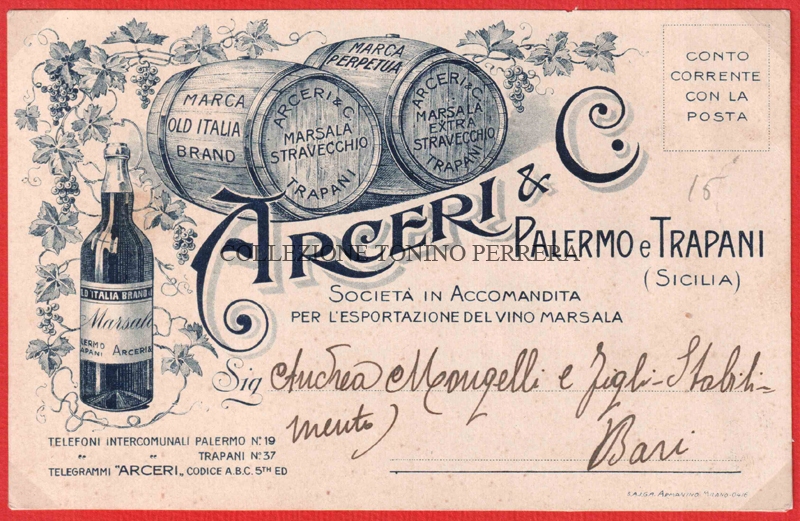 MARCA
OLD ITALIA
BRAND
ARCERI & C.
MARSALA
STRAVECCHIO
TRAPANI
MARCA
PERPETUA
ARCERI & C.
MARSALA
EXTRA
STRAVECCHIO
TRAPANI
CONTO
CORRENTE
CON LA
POSTA
15
ARCERI & C.
PALERMO e TRAPANI
(SICILIA)
COLLEZIONE TONINO PERRERA
SOCIETÀ IN ACCOMANDITA
PER L'ESPORTAZIONE DEL VINO MARSALA
OLD ITALIA BRAND
Marsala
PALERMO
TRAPANI ARCERI &
Sig Andrea Mongelli e Figli - Stabili-
mento
Bari
TELEFONI INTERCOMUNALI PALERMO Nº 19
" " TRAPANI Nº 37
TELEGRAMMI "ARCERI" CODICE A.B.C. 5TH ED